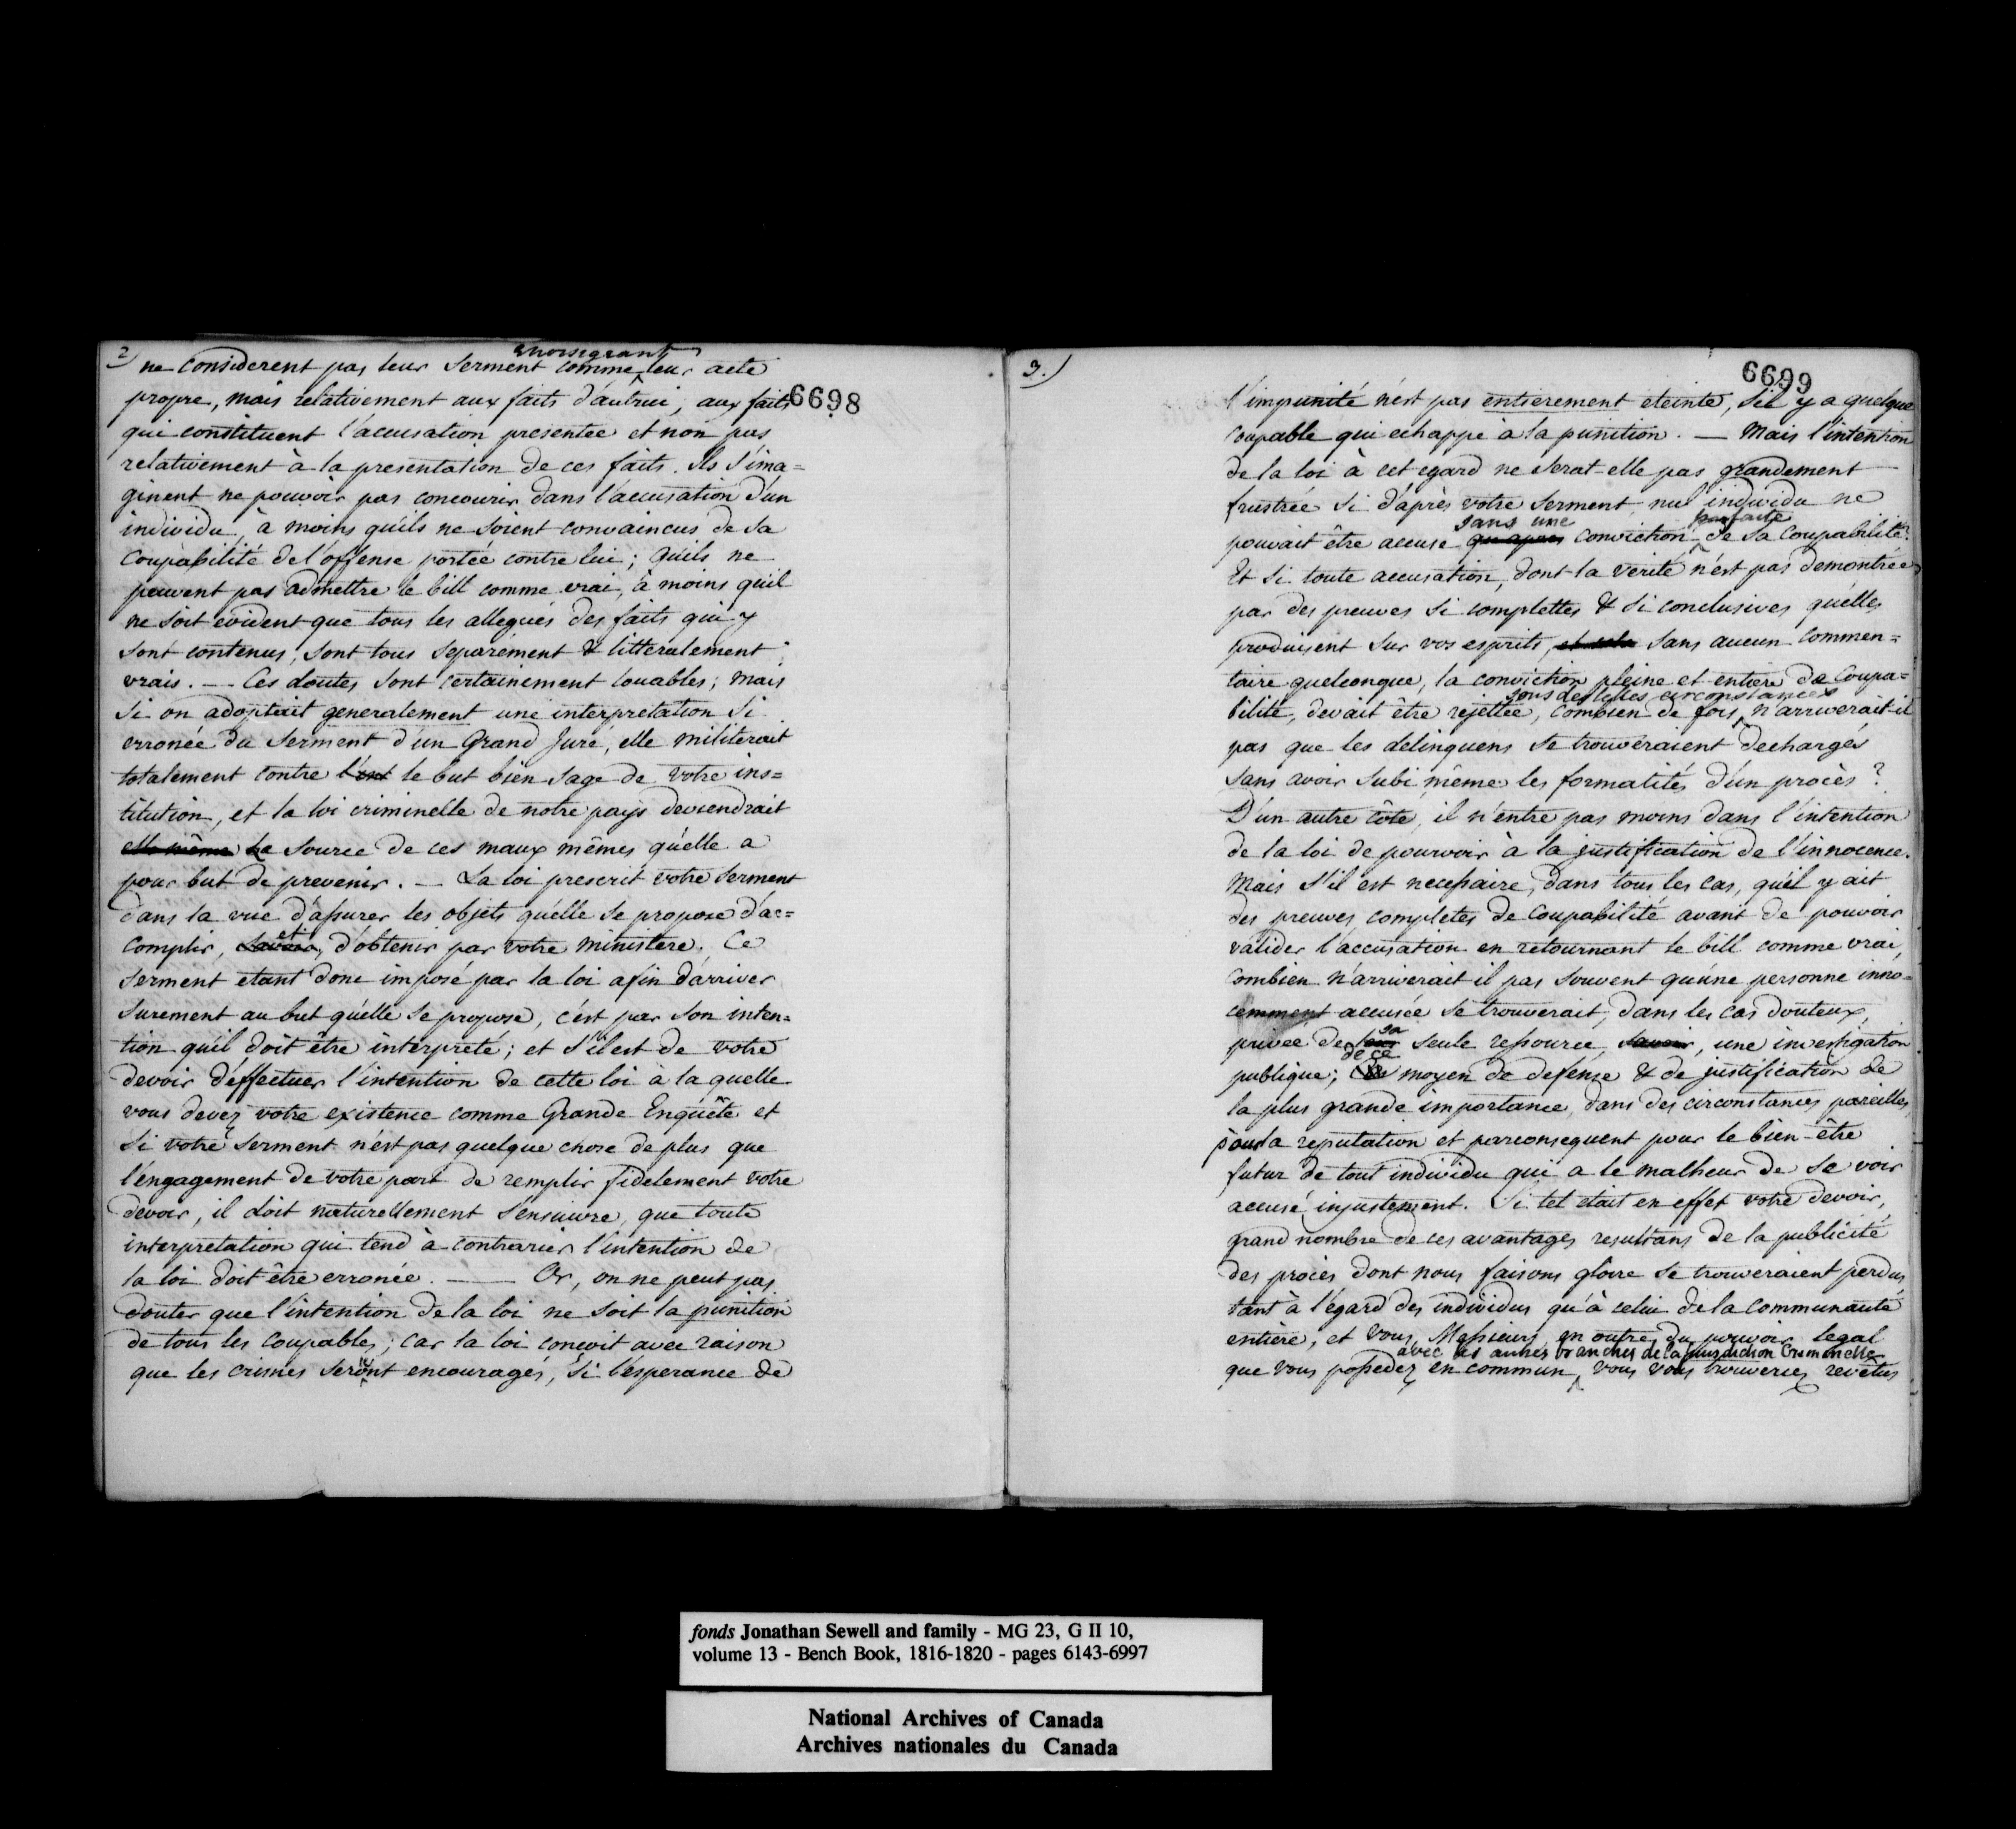 2
envisageant
ne considerent pas leur serment comme leur acte
propre, mais relativement aux faits d'autrui, aux faits
6698
qui constituent l'accusation presentée et non pas
relativement à la presentation de ces faits. Ils s'ima=
ginent ne pouvoir pas concourir dans l'accusation d'un
individu, à moins qu'ils ne soient convaincus de sa
coupabilité de l'offense portée contre lui; qu'ils ne
peuvent pas admettre le bill comme vrai, à moins qu'il
ne soit evident que tous les allegués des faits qui y
sont contenus, sont tous separément & litteralement
vrais. — Ces doutes sont certainement louables; mais
si on adoptait generalement une interpretation si
erronée du serment d'un Grand Juré, elle militerait
totalement contre le but bien sage de votre ins=
titution, et la loi criminelle de notre pays deviendrait
elle même la source de ces maux mêmes qu'elle a
pour but de prevenir. — La loi prescrit votre serment
dans la vue d'assurer les objets qu'elle se propose d'ac=
et
complir, savoir, d'obtenir par votre ministere. Ce
serment etant donc imposé par la loi afin d'arriver
surement au but qu'elle se propose, c'est par son inten=
tion qu'il doit être interpreté; et s'il est de votre
devoir d'effectuer l'intention de cette loi à la quelle
vous devez votre existence comme Grande Enquête et
si votre serment n'est pas quelque chose de plus que
l'engagement de votre part de remplir fidelement votre
devoir, il doit naturellement s'ensuivre, que toute
interpretation qui tend à contrarier l'intention de
la loi doit être erronée. — Or, on ne peut pas
douter que l'intention de la loi ne soit la punition
de tous les coupables; car la loi conçoit avec raison
que les crimes seront encouragés, si l'esperance de
3.
6699
l'impunité n'est pas entierement eteinte, s'il y a quelque
coupable qui echappe à la punition. — Mais l'intention
de la loi à cet egard ne serat-elle pas grandement
frustrée si d'après votre serment nul individu ne
sans une parfaite
pouvait être accuse qu'apres conviction de sa coupabilité?
Et si toute accusation, dont la verité n'est pas demontrée
par des preuves si complettes & si conclusives qu'elles
produisent sur vos esprits, et cela sans aucun commen=
taire quelconque, la conviction pleine et entiere de coupa=
sous de telles circonstances
bilité, devait être rejettée, combien de fois, n'arriverait-il
pas que les delinquens se trouveraient dechargés
sans avoir subi même les formalités d'un procès?
D'un autre côte, il n'entre pas moins dans l'intention
de la loi de pourvoir à la justification de l'innocence.
Mais s'il est necessaire, dans tous les cas, qu'il y ait
des preuves completes de coupabilité avant de pouvoir
valider l'accusation en retournant le bill comme vrai,
combien n'arriverait il pas souvent qu'une personne inno=
cemment accusée se trouverait, dans les cas douteux,
sa
privée de seule ressource, savoir, une investigation
de ce
publique; moyen de defense & de justification de
la plus grande importance, dans des circonstances pareilles,
pour la reputation et parconsequent pour le bien-être
futur de tout individu qui a le malheur de se voir
accusé injustement. Si tel etait en effet votre devoir,
grand nombre de ces avantages resultans de la publicité
des procès dont nous faisons gloire se trouveraient perdus
tant à l'égard des individus qu'à celui de la communauté
entière, et vous, Messieurs, en outre du pouvoir legal
avec les autres branches de la jurisdiction criminelle
que vous possedez en commun, vous vous trouveriez revêtus
fonds Jonathan Sewell and family - MG 23, G II 10,
volume 13 - Bench Book, 1816-1820 - pages 6143-6997
National Archives of Canada
Archives nationales du Canada